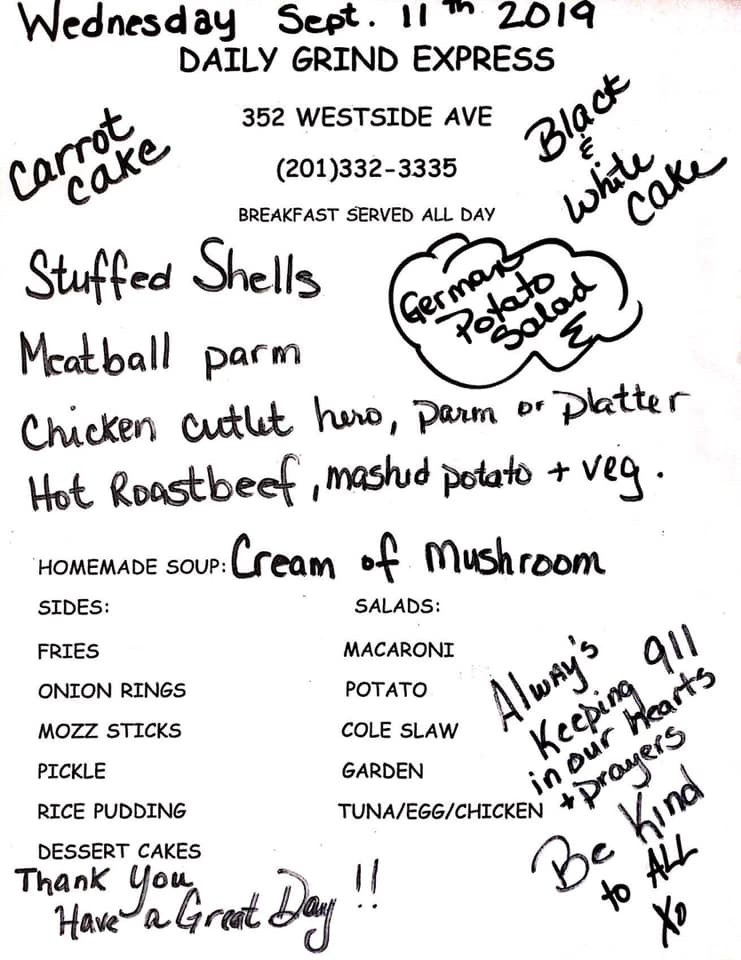 Wednesday Sept. 11th 2019
DAILY GRIND EXPRESS
352 WESTSIDE AVE
(201)332-3335
BREAKFAST SERVED ALL DAY
Carrot
Cake
Black
&
White
Cake
Stuffed Shells
German
Potato
Salad
Meatball parm
Chicken cutlet hero, parm or platter
Hot Roastbeef, mashed potato + veg.
HOMEMADE SOUP: Cream of Mushroom
SIDES:
FRIES
ONION RINGS
MOZZ STICKS
PICKLE
RICE PUDDING
DESSERT CAKES
SALADS:
MACARONI
POTATO
COLE SLAW
GARDEN
TUNA/EGG/CHICKEN
Alway's
Keeping 911
in our hearts
+ prayers
Be Kind
to ALL
XO
Thank You
Have a Great Day!!